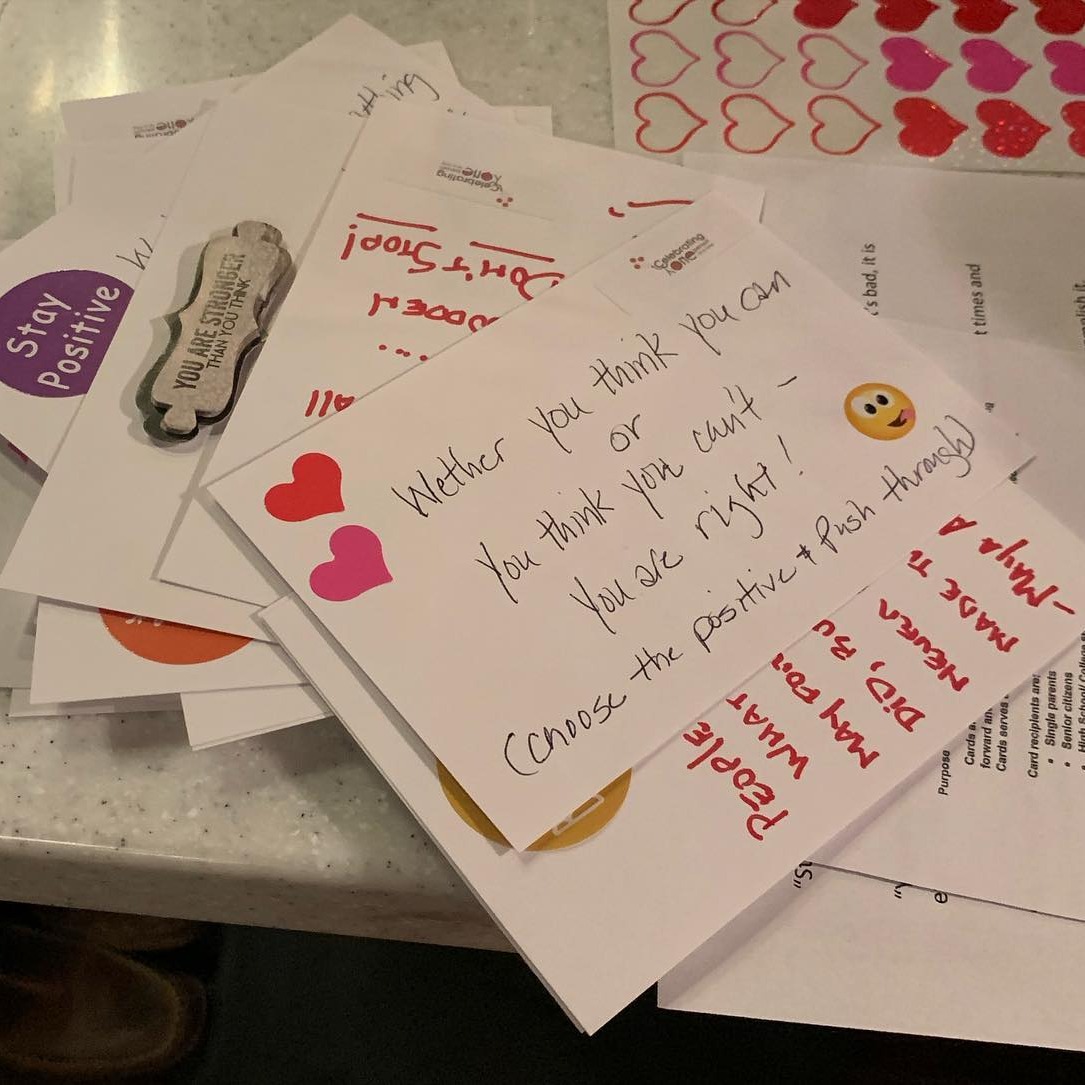 Wether you think you can
or
you think you can't –
you are right!
(choose the positive & Push through)
Celebrating
Stay
Positive
YOU ARE STRONGER
THAN YOU THINK
Celebrating
DON'T STOP!
All
PEOPLE
WHAT
MAY FOR
DID, BU
NEVER
MADE
– MAYA A
's bad, it is
t times and
Purpose
Cards a
forward an
Cards serves
Card recipients are:
• Single parents
• Senior citizens
• High School College